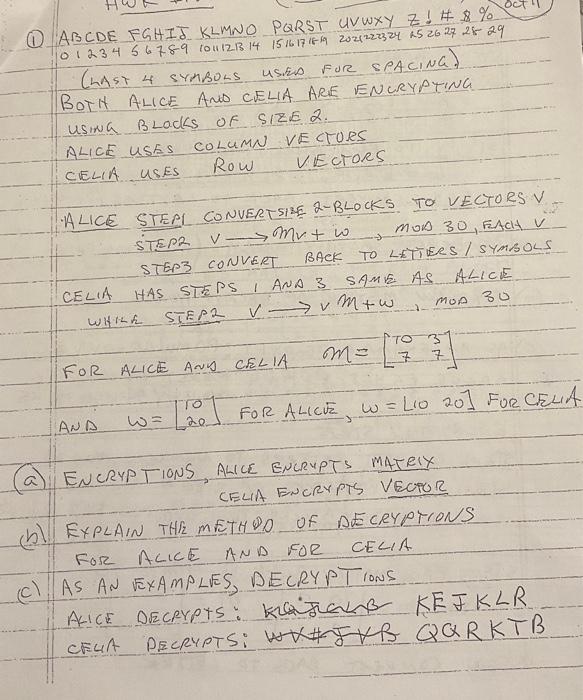 HWK
OCT 11
① ABCDE FGHIJ KLMNO PQRST UVWXY Z ! # $ %
0 1 2 3 4 5 6 7 8 9 10 11 12 13 14 15 16 17 18 19 20 21 22 23 24 25 26 27 28 29
(LAST 4 SYMBOLS USED FOR SPACING)
BOTH ALICE AND CELIA ARE ENCRYPTING
USING BLOCKS OF SIZE 2.
ALICE USES COLUMN VECTORS
CELIA USES ROW VECTORS
ALICE STEP1 CONVERT SIZE 2-BLOCKS TO VECTORS V
STEP2 V → MV + W, MOD 30, EACH V
STEP3 CONVERT BACK TO LETTERS / SYMBOLS
CELIA HAS STEPS 1 AND 3 SAME AS ALICE
WHILE STEP2 V → VM+W, MOD 30
FOR ALICE AND CELIA M = [10 3
7 7]
AND W = [10
20] FOR ALICE, W = [10 20] FOR CELIA
(a) ENCRYPTIONS, ALICE ENCRYPTS MATRIX
CELIA ENCRYPTS VECTOR
(b) EXPLAIN THE METHOD OF DECRYPTIONS
FOR ALICE AND FOR CELIA
(c) AS AN EXAMPLES, DECRYPTIONS
ALICE DECRYPTS: KEJKLR
CELIA DECRYPTS: QQRKTB